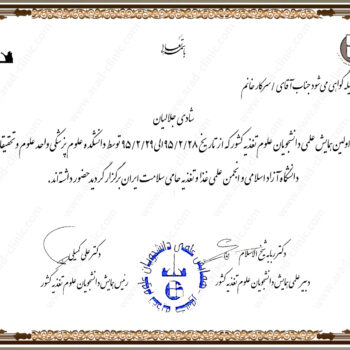 باسمه تعالی
یله گواهی می شود جناب آقای / سرکار خانم
شادی جلالیان
اولین همایش علمی دانشجویان علوم تغذیه کشور که از تاریخ ۹۵/۲/۲۸ الی ۹۵/۲/۲۹ توسط دانشکده علوم پزشکی واحد علوم و تحقیقا
دانشگاه آزاد اسلامی و انجمن علمی غذا و تغذیه حامی سلامت ایران برگزار گردید حضور داشته‌اند.
دکتر ربابه شیخ الاسلام
دبیر علمی همایش دانشجویان علوم تغذیه کشور
دکتر علی کمیلی
رئیس همایش دانشجویان علوم تغذیه کشور